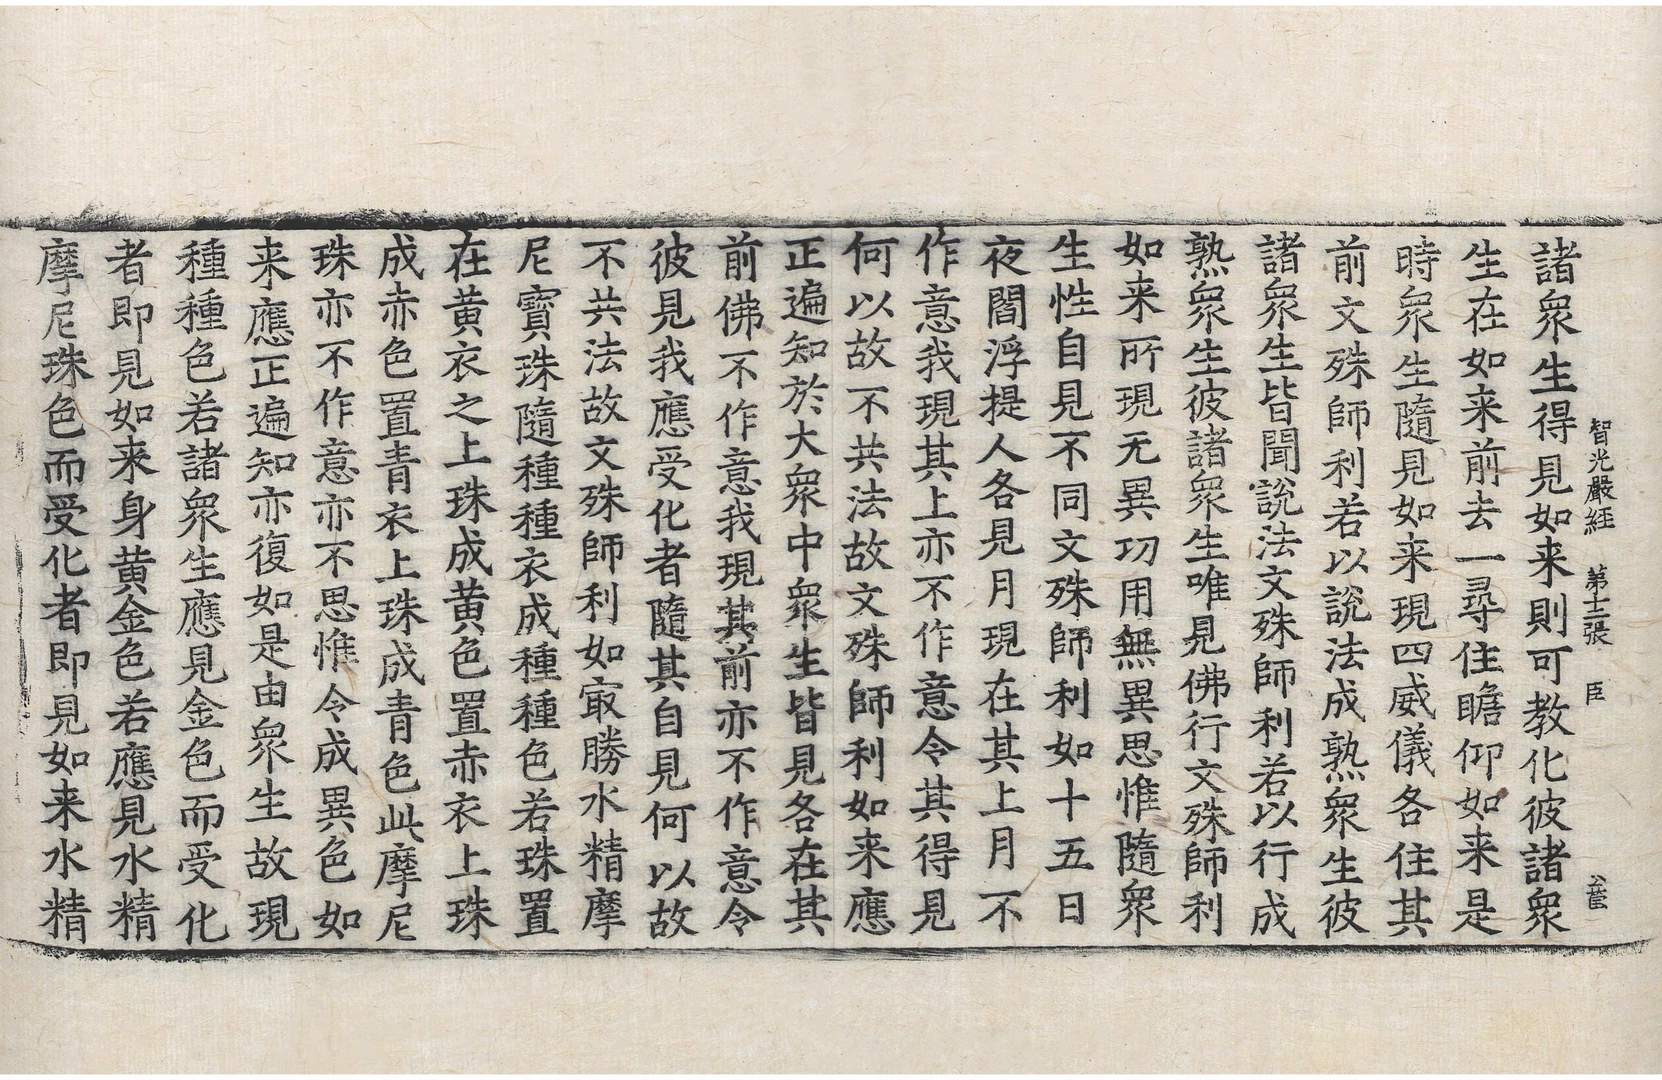 智光嚴經 第十三張 臣
諸衆生得見如来則可教化彼諸衆
生在如来前去一尋住瞻仰如来是
時衆生隨見如来現四威儀各住其
前文殊師利若以說法成熟衆生彼
諸衆生皆聞說法文殊師利若以行成
熟衆生彼諸衆生唯見佛行文殊師利
如来所現无異功用無異思惟隨衆
生性自見不同文殊師利如十五日
夜閻浮提人各見月現在其上月不
作意我現其上亦不作意令其得見
何以故不共法故文殊師利如来應
正遍知於大衆中衆生皆見各在其
前佛不作意我現其前亦不作意令
彼見我應受化者隨其自見何以故
不共法故文殊師利如㝡勝水精摩
尼寶珠隨種種衣成種種色若珠置
在黄衣之上珠成黄色置赤衣上珠
成赤色置青衣上珠成青色此摩尼
珠亦不作意亦不思惟令成異色如
来應正遍知亦復如是由衆生故現
種種色若諸衆生應見金色而受化
者即見如来身黄金色若應見水精
摩尼珠色而受化者即見如来水精